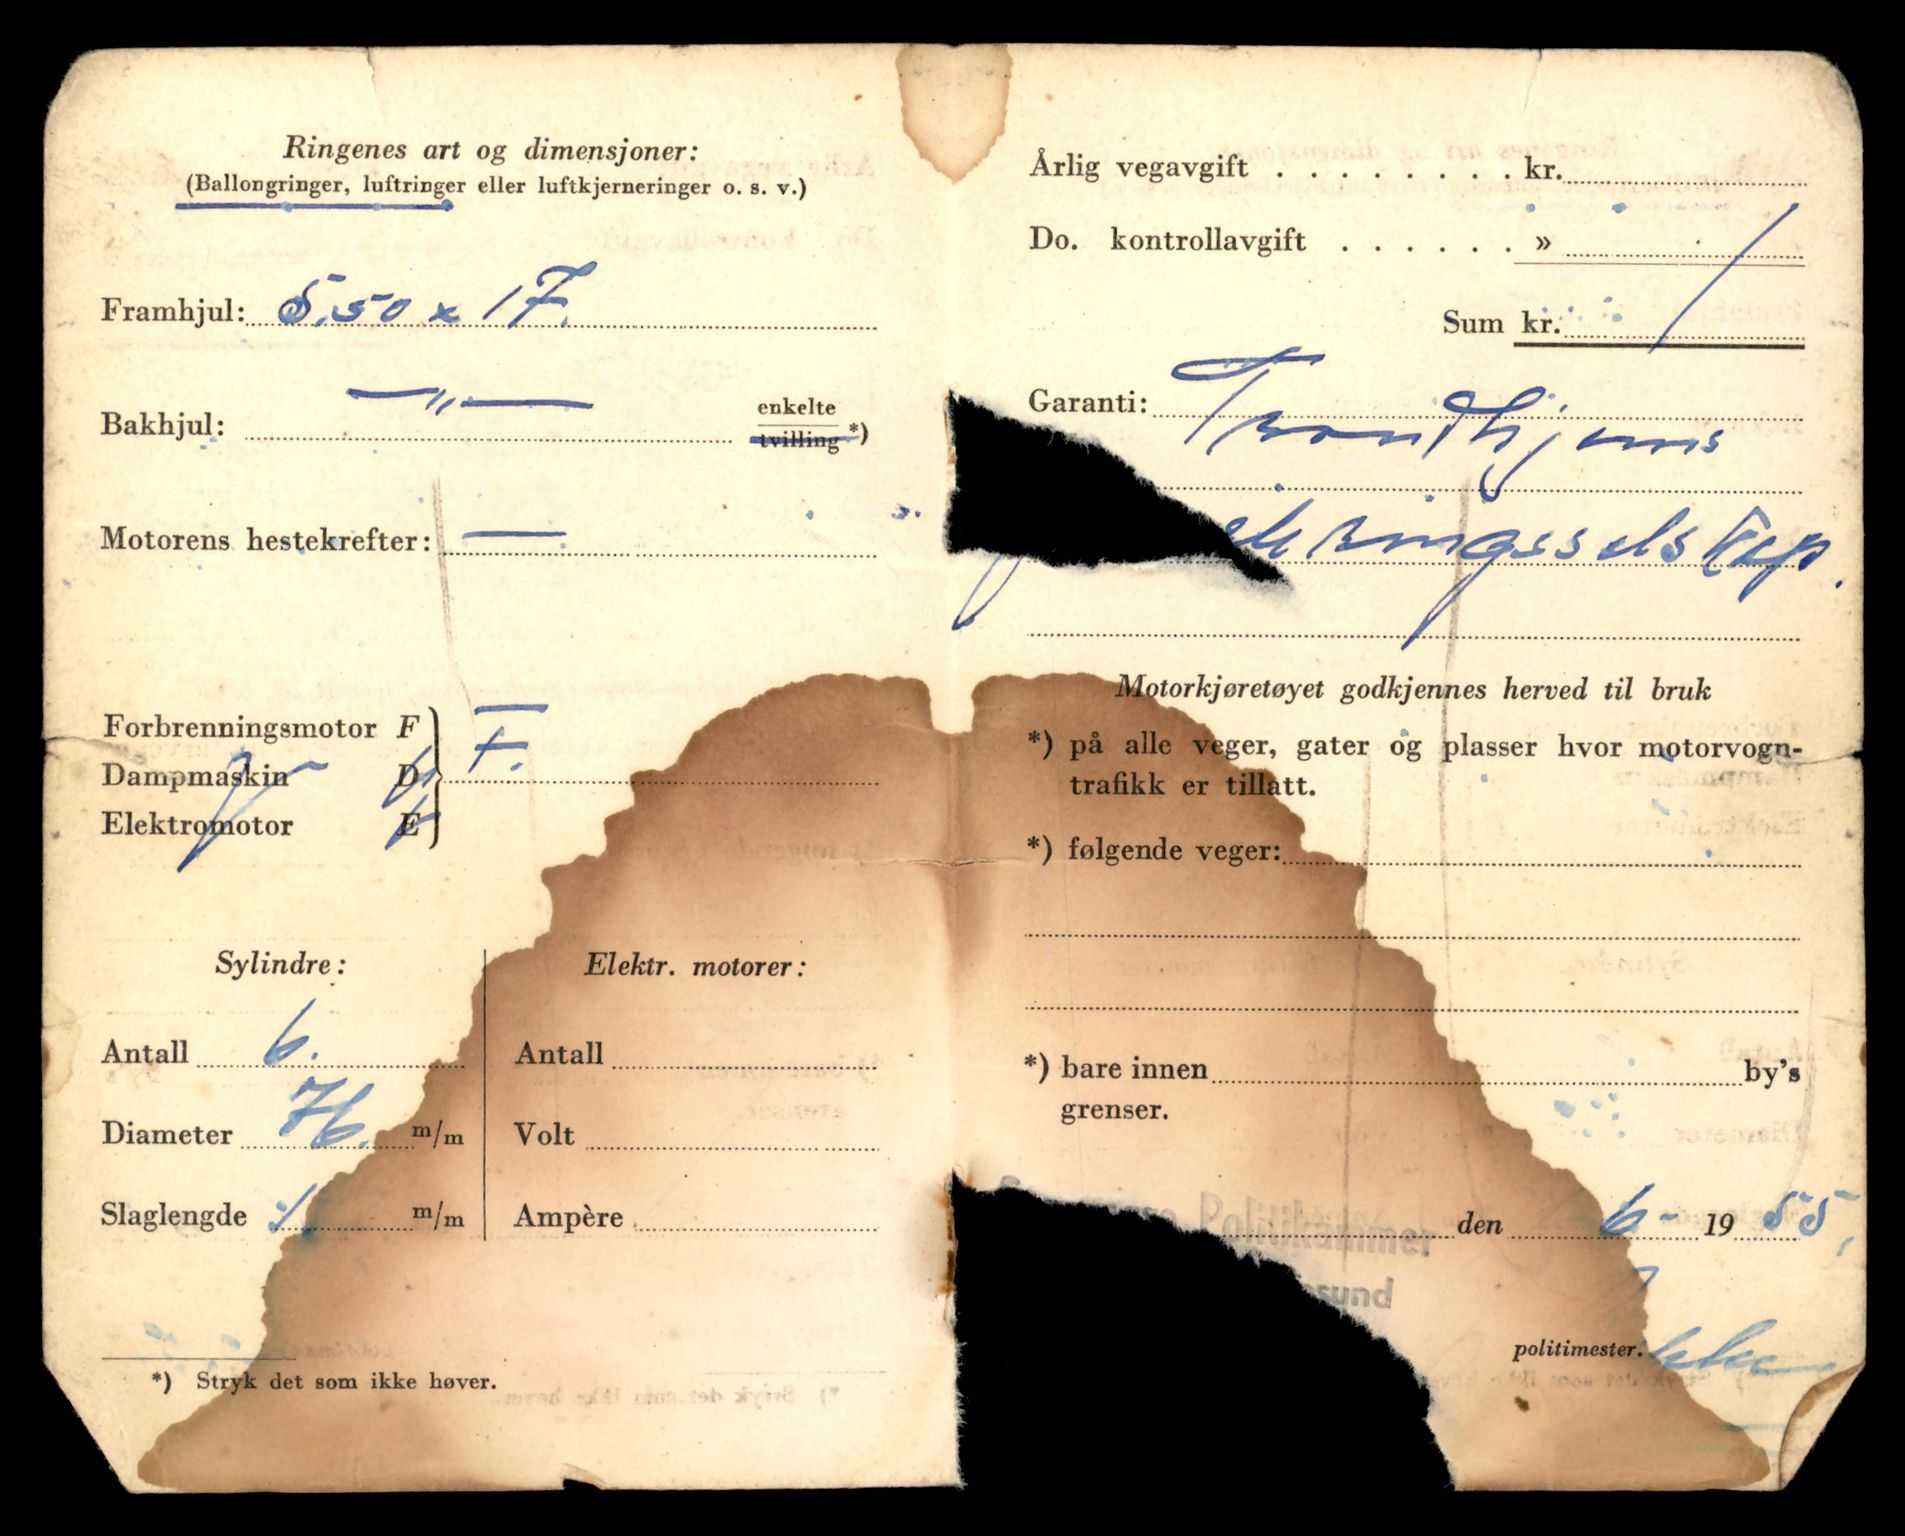 Ringenes art og dimensjoner:
(Ballongringer, luftringer eller luftkjerneringer o. s. v.)
Framhjul: 5.50 x 17.
Bakhjul: —„— enkelte
tvilling *)
Motorens hestekrefter: —
Forbrenningsmotor F
Dampmaskin D
Elektromotor E
F.
Sylindre:
Antall 6.
Diameter 76. m/m
Slaglengde m/m
Elektr. motorer:
Antall
Volt
Ampère
*) Stryk det som ikke høver.
Årlig vegavgift . . . . . . . . kr.
Do. kontrollavgift . . . . . . »
Sum kr.
Garanti: Trondhjems
ikringsselskap.
Motorkjøretøyet godkjennes herved til bruk
*) på alle veger, gater og plasser hvor motorvogn-
trafikk er tillatt.
*) følgende veger:
*) bare innen by's
grenser.
Politikammer
den 6- 19 55.
sund
politimester.